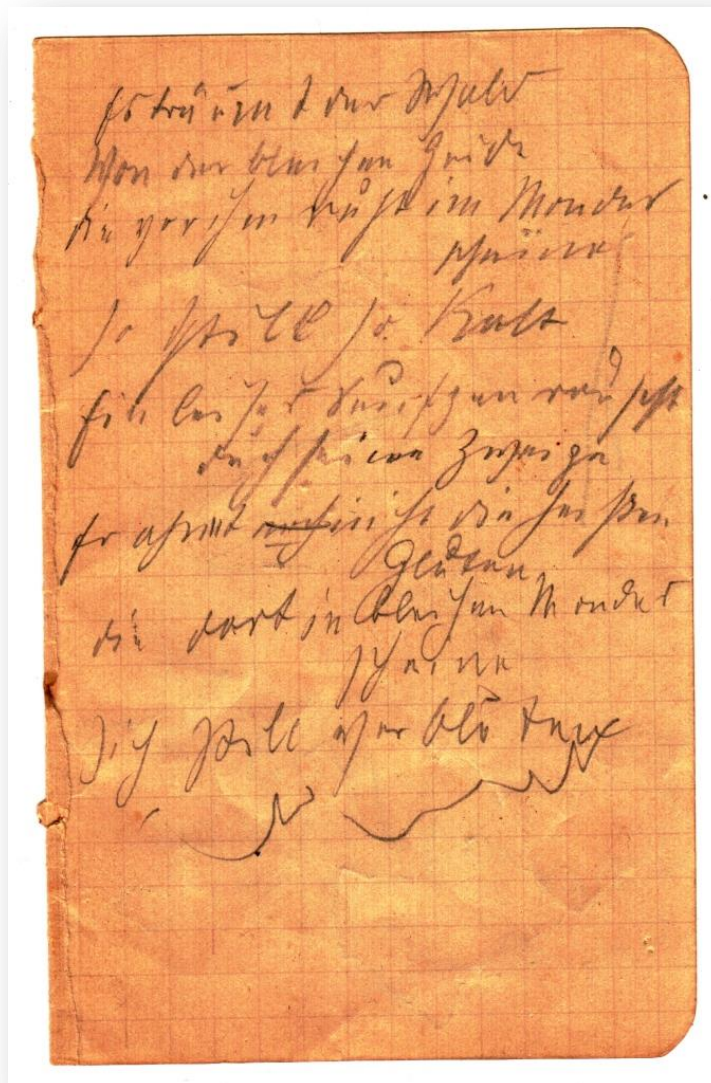 Es träumt der Wald
Von der bleichen Heide
die vor ihm ruht im Mondes
scheine
so still so kalt
Ein leises Seufzen rauscht
durch seine Zweige
Er ahnt nicht die heißen
Gluten
die dort im bleichen Mondes
scheine
sich still verbluten